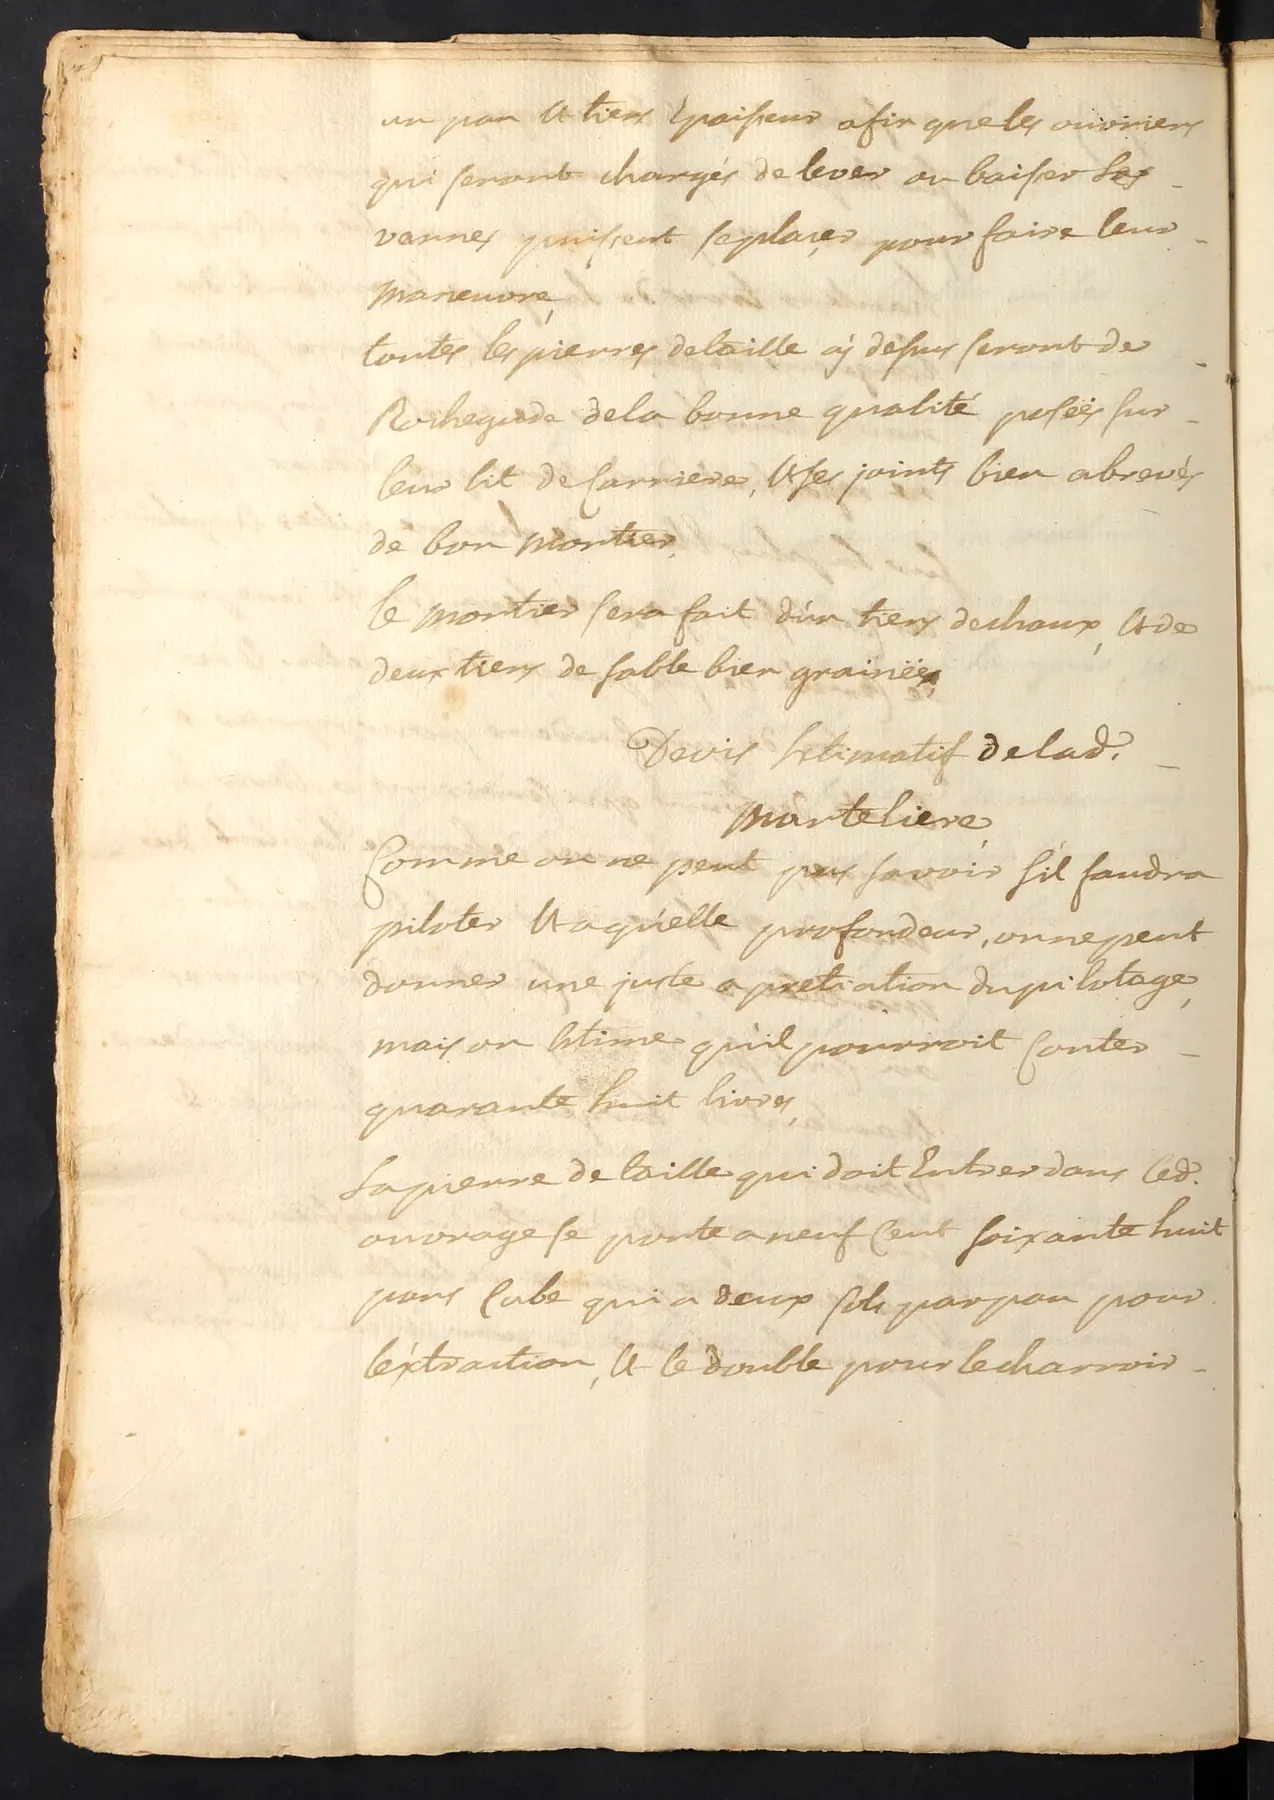 un pan et tiers Epaisseur afin que les ouvriers
qui seront chargés de lever ou baisser les
vannes puissent se plaçer pour faire leur
maneuvre,
toutes les pierres de taille cy dessus seront de
Rochegude de la bonne qualité posées sur
leur lit de Carriere, et ses joints bien abrevés
de bon mortier,
le mortier sera fait d'un tiers de chaux, et de
deux tiers de sable bien grainée,
Devis Estimatif de lad.
marteliere,
Comme on ne peut pas savoir s'il faudra
piloter et a qu'elle profondeur, on ne peut
donner une juste apretiation du pilotage,
mais on Estime qu'il pourroit Couter
quarante huit livres,
La pierre de taille qui doit Entrer dans led.
ouvrage se porte a neuf Cent soixante huit
pans Cube qui a deux sols par pan pour
l'éxtraction, et le double pour le charroir